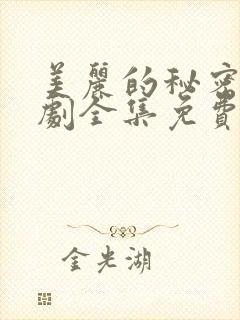 美麗的秘密
劇全集免費
金光湖